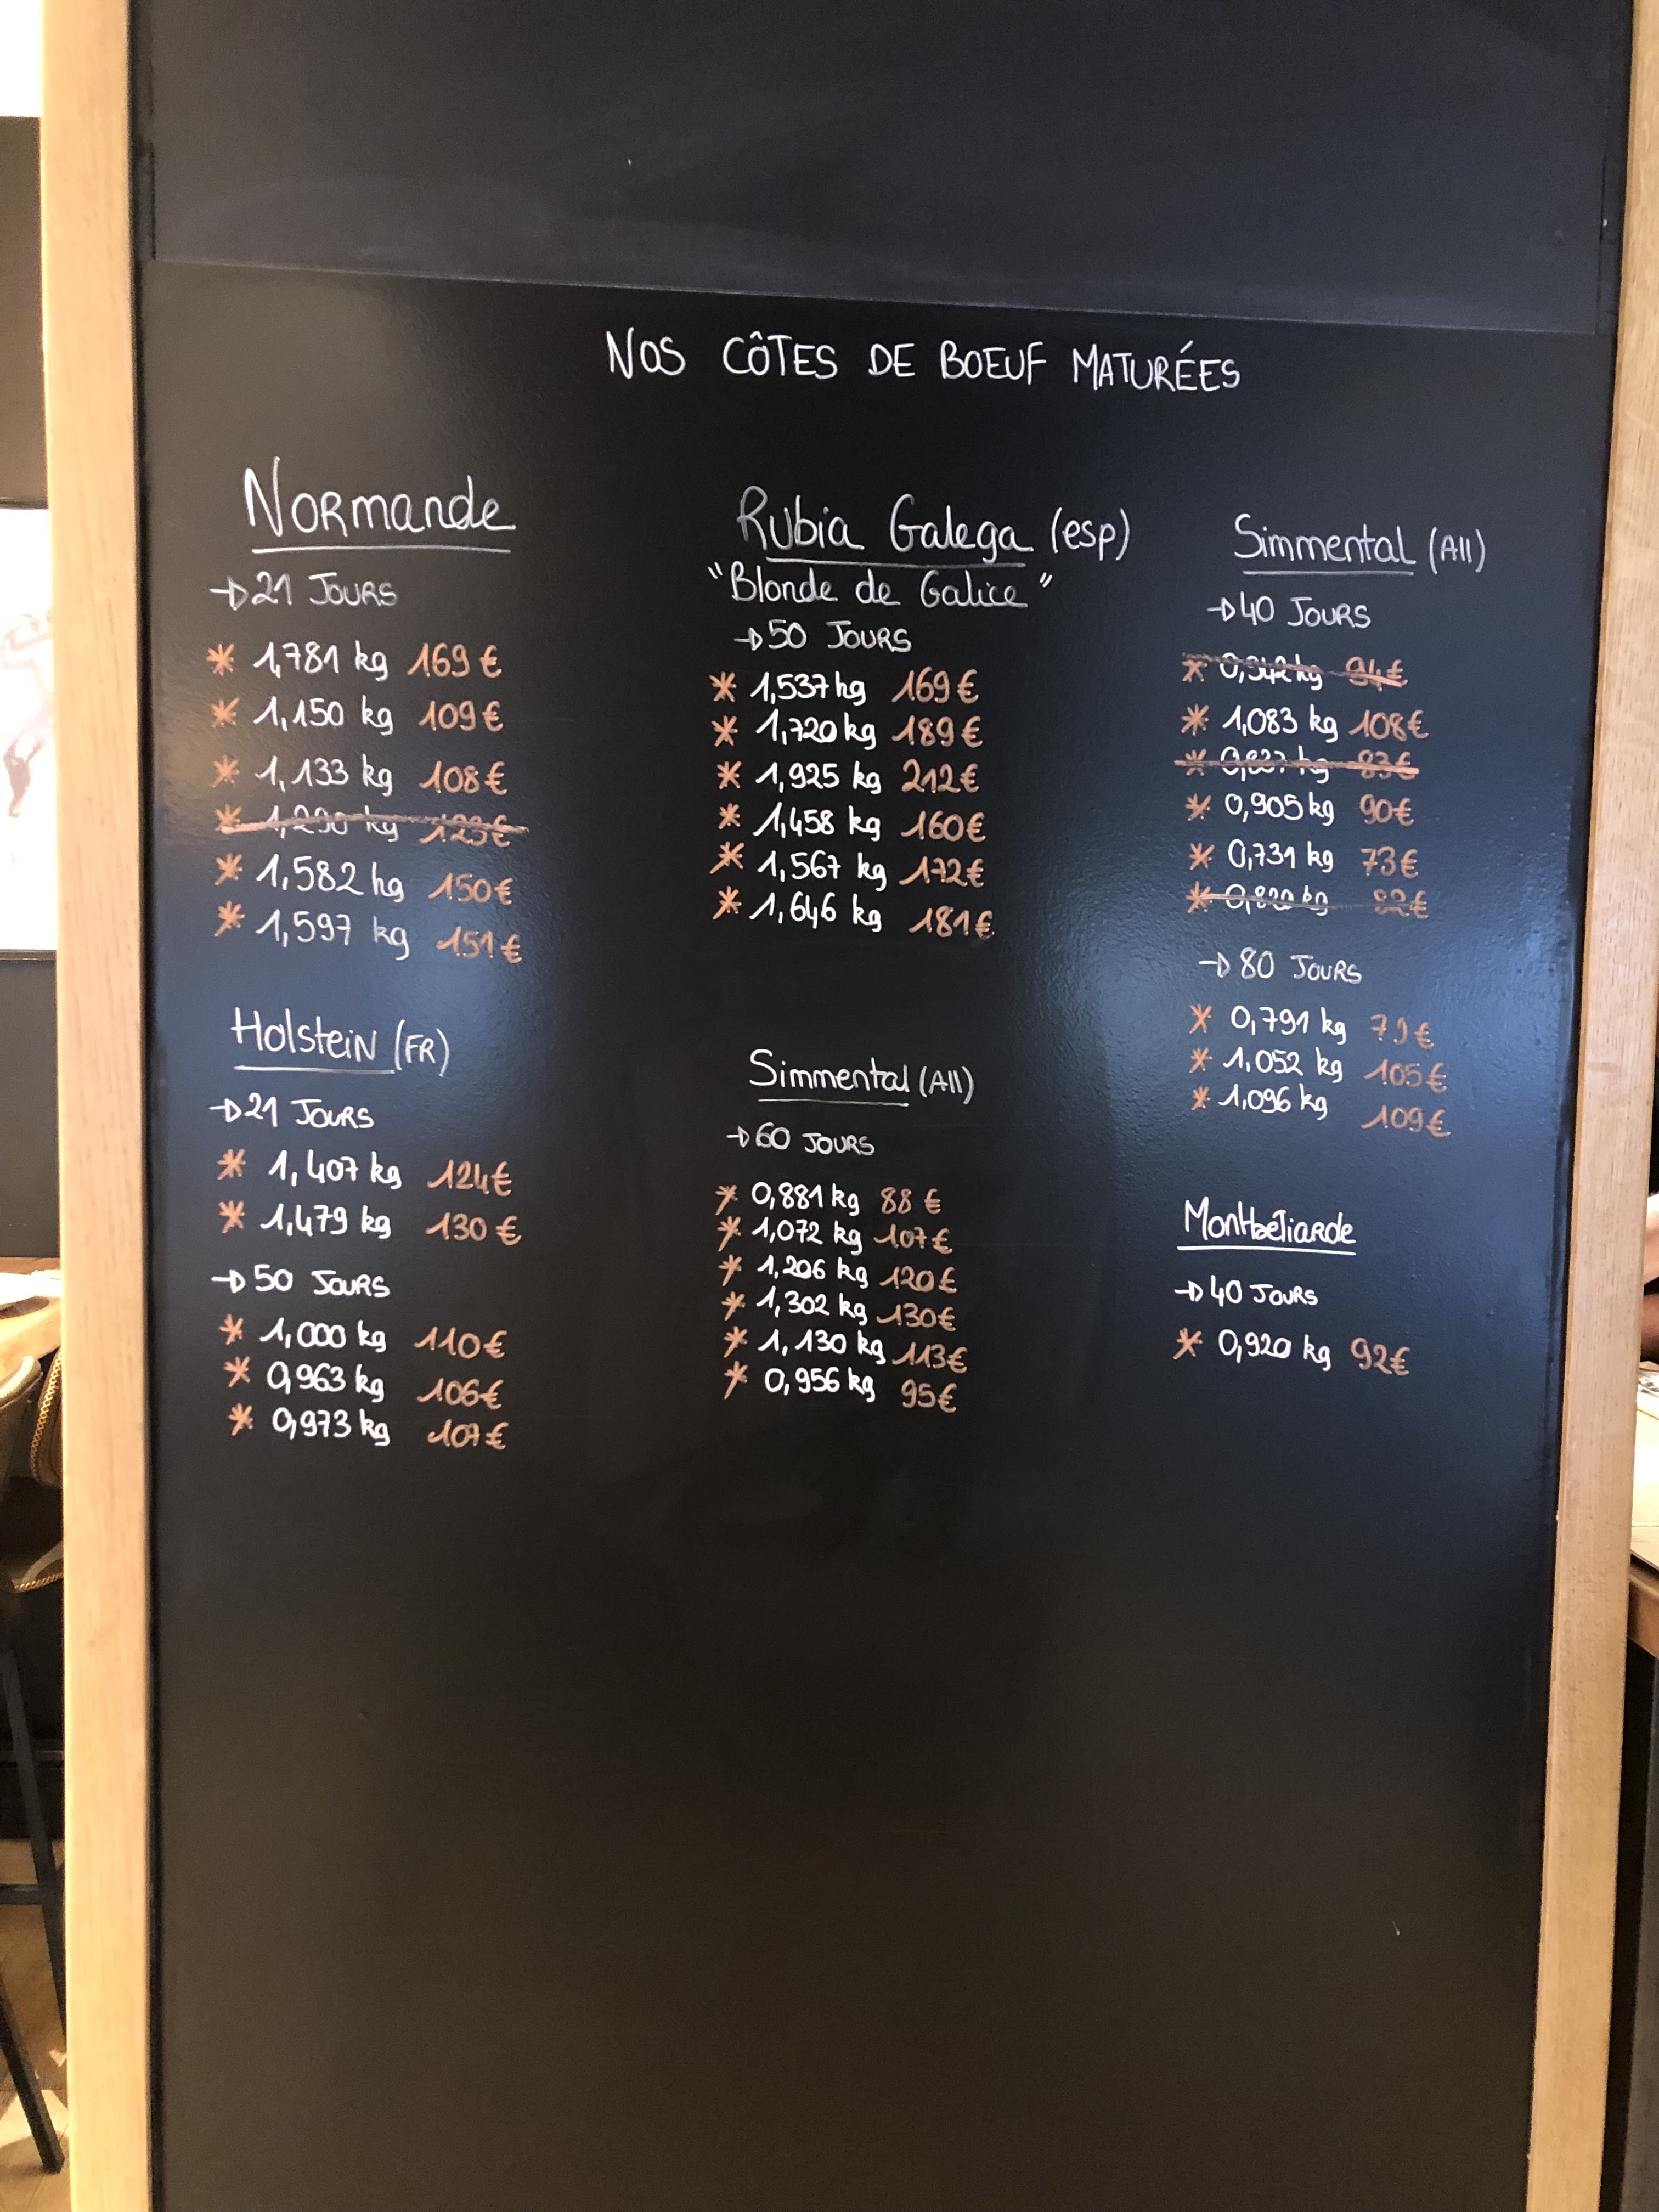 NOS CÔTES DE BOEUF MATURÉES
Normande
→21 JOURS
* 1,781 kg 169 €
* 1,150 kg 109 €
* 1,133 kg 108 €
* 1,290 kg 123 €
* 1,582 kg 150 €
* 1,597 kg 151 €
Holstein (FR)
→21 JOURS
* 1,407 kg 124 €
* 1,479 kg 130 €
→50 JOURS
* 1,000 kg 110 €
* 0,963 kg 106 €
* 0,973 kg 107 €
Rubia Galega (esp)
"Blonde de Galice"
→50 JOURS
* 1,537 kg 169 €
* 1,720 kg 189 €
* 1,925 kg 212 €
* 1,458 kg 160 €
* 1,567 kg 172 €
* 1,646 kg 181 €
Simmental (All)
→60 JOURS
* 0,881 kg 88 €
* 1,072 kg 107 €
* 1,206 kg 120 €
* 1,302 kg 130 €
* 1,130 kg 113 €
* 0,956 kg 95 €
Simmental (All)
→40 JOURS
* 0,942 kg 94 €
* 1,083 kg 108 €
* kg 83 €
* 0,905 kg 90 €
* 0,731 kg 73 €
* kg 82 €
→80 JOURS
* 0,791 kg 79 €
* 1,052 kg 105 €
* 1,096 kg 109 €
Montbéliarde
→40 JOURS
* 0,920 kg 92 €